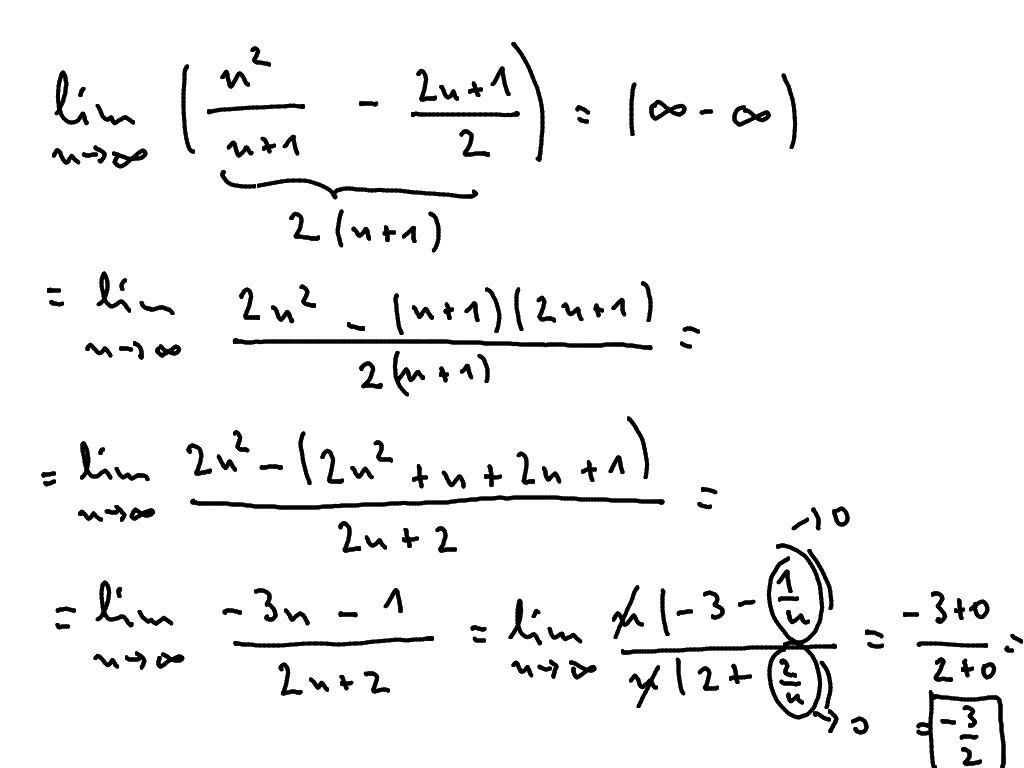 lim n→∞ ( n² / (n+1) − (2n+1) / 2 ) = (∞ − ∞)
2(n+1)
= lim n→∞ (2n² − (n+1)(2n+1)) / (2(n+1)) =
= lim n→∞ (2n² − (2n² + n + 2n + 1)) / (2n + 2) =
= lim n→∞ (−3n − 1) / (2n+2) = lim n→∞ n(−3 − 1/n) →0 / n(2 + 2/n) →0 = (−3+0) / (2+0) =
= −3/2